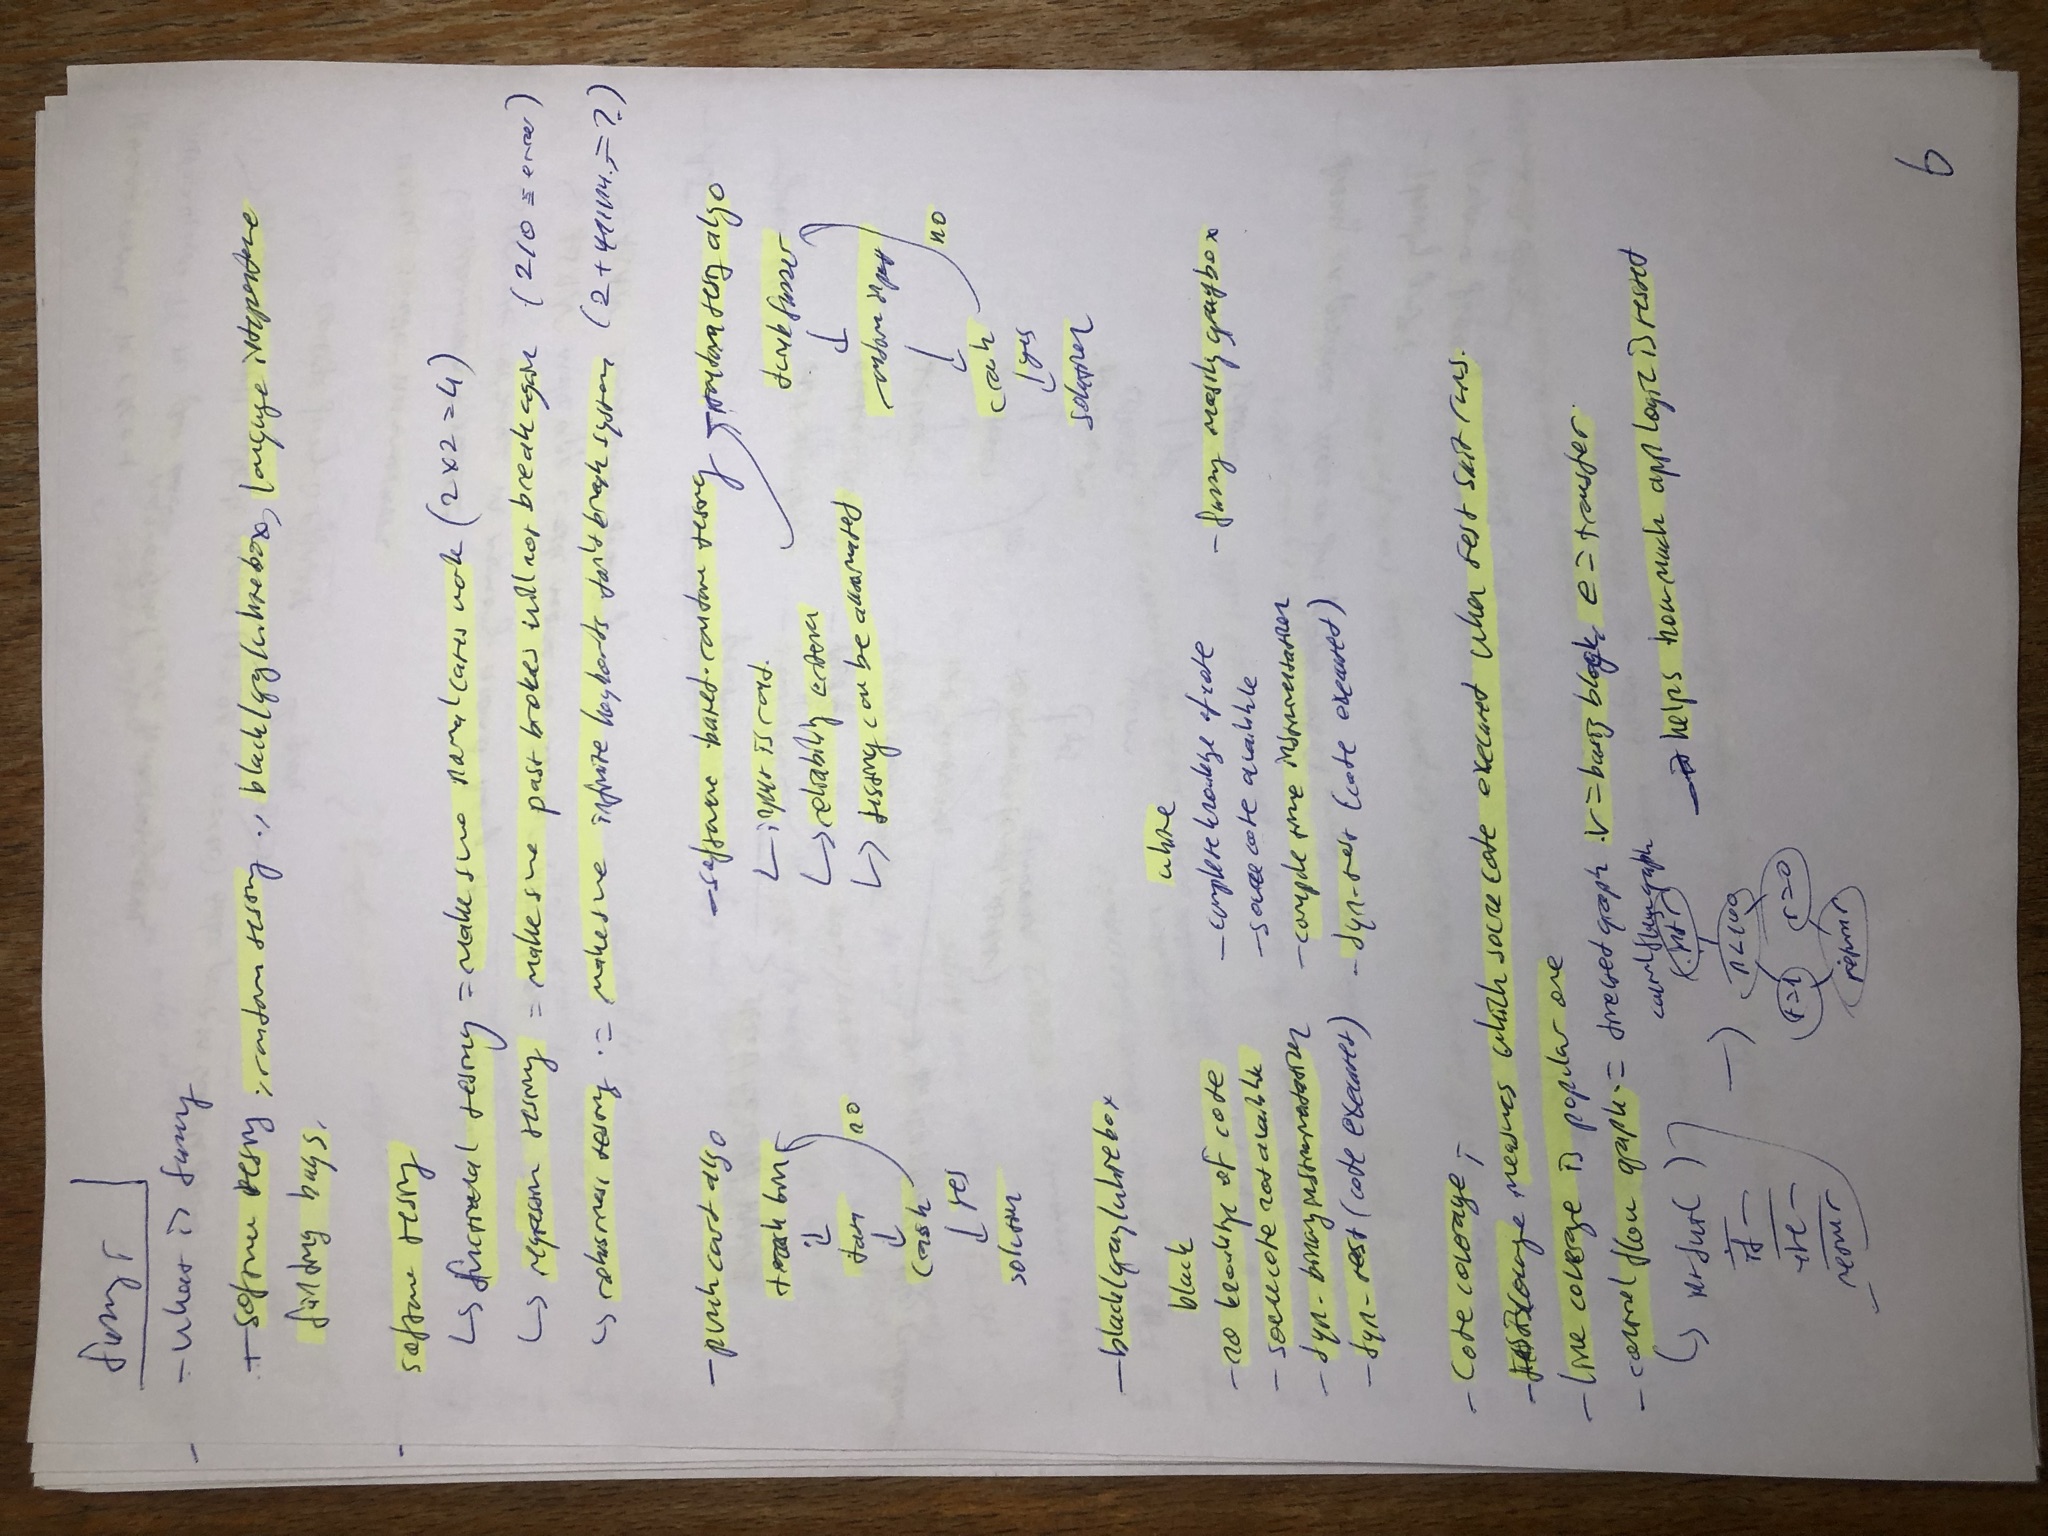 Fuzzy I
- What is fuzzy
+ software testing, random testing, black/gray/whitebox, language independence
finding bugs.
- software testing
↳ functional testing = make sure normal cases work (2x2=4)
↳ regression testing = make sure past brokes will not break again (2/0 = error)
↳ robustness testing := make sure infinite keyboards can't break system (2+41114.,=?)
- punch card algo
trash bin
↓
↓
crash no
↓ yes
solution
- software based random testing
↳ input is rand.
↳ reliability criteria
↳ testing can be automated
random testing algo
↓
random input
↓
crash no
↓ yes
solution
- black/gray/whitebox
black
- no knowledge of code
- source code not available
- dyn. binary instrumentation
- dyn. test (code executed)
white
- complete knowledge of code
- source code available
- compile time instrumentation
- dyn. test (code executed)
- fuzzy mostly graybox
- code coverage,
- coverage measures which source code executed when test suit runs.
- line coverage is popular one
- control flow graph := directed graph v = basic block, e = transfer
control flow graph
→ helps how much app logic is tested
return
r=1
r=0
return
6